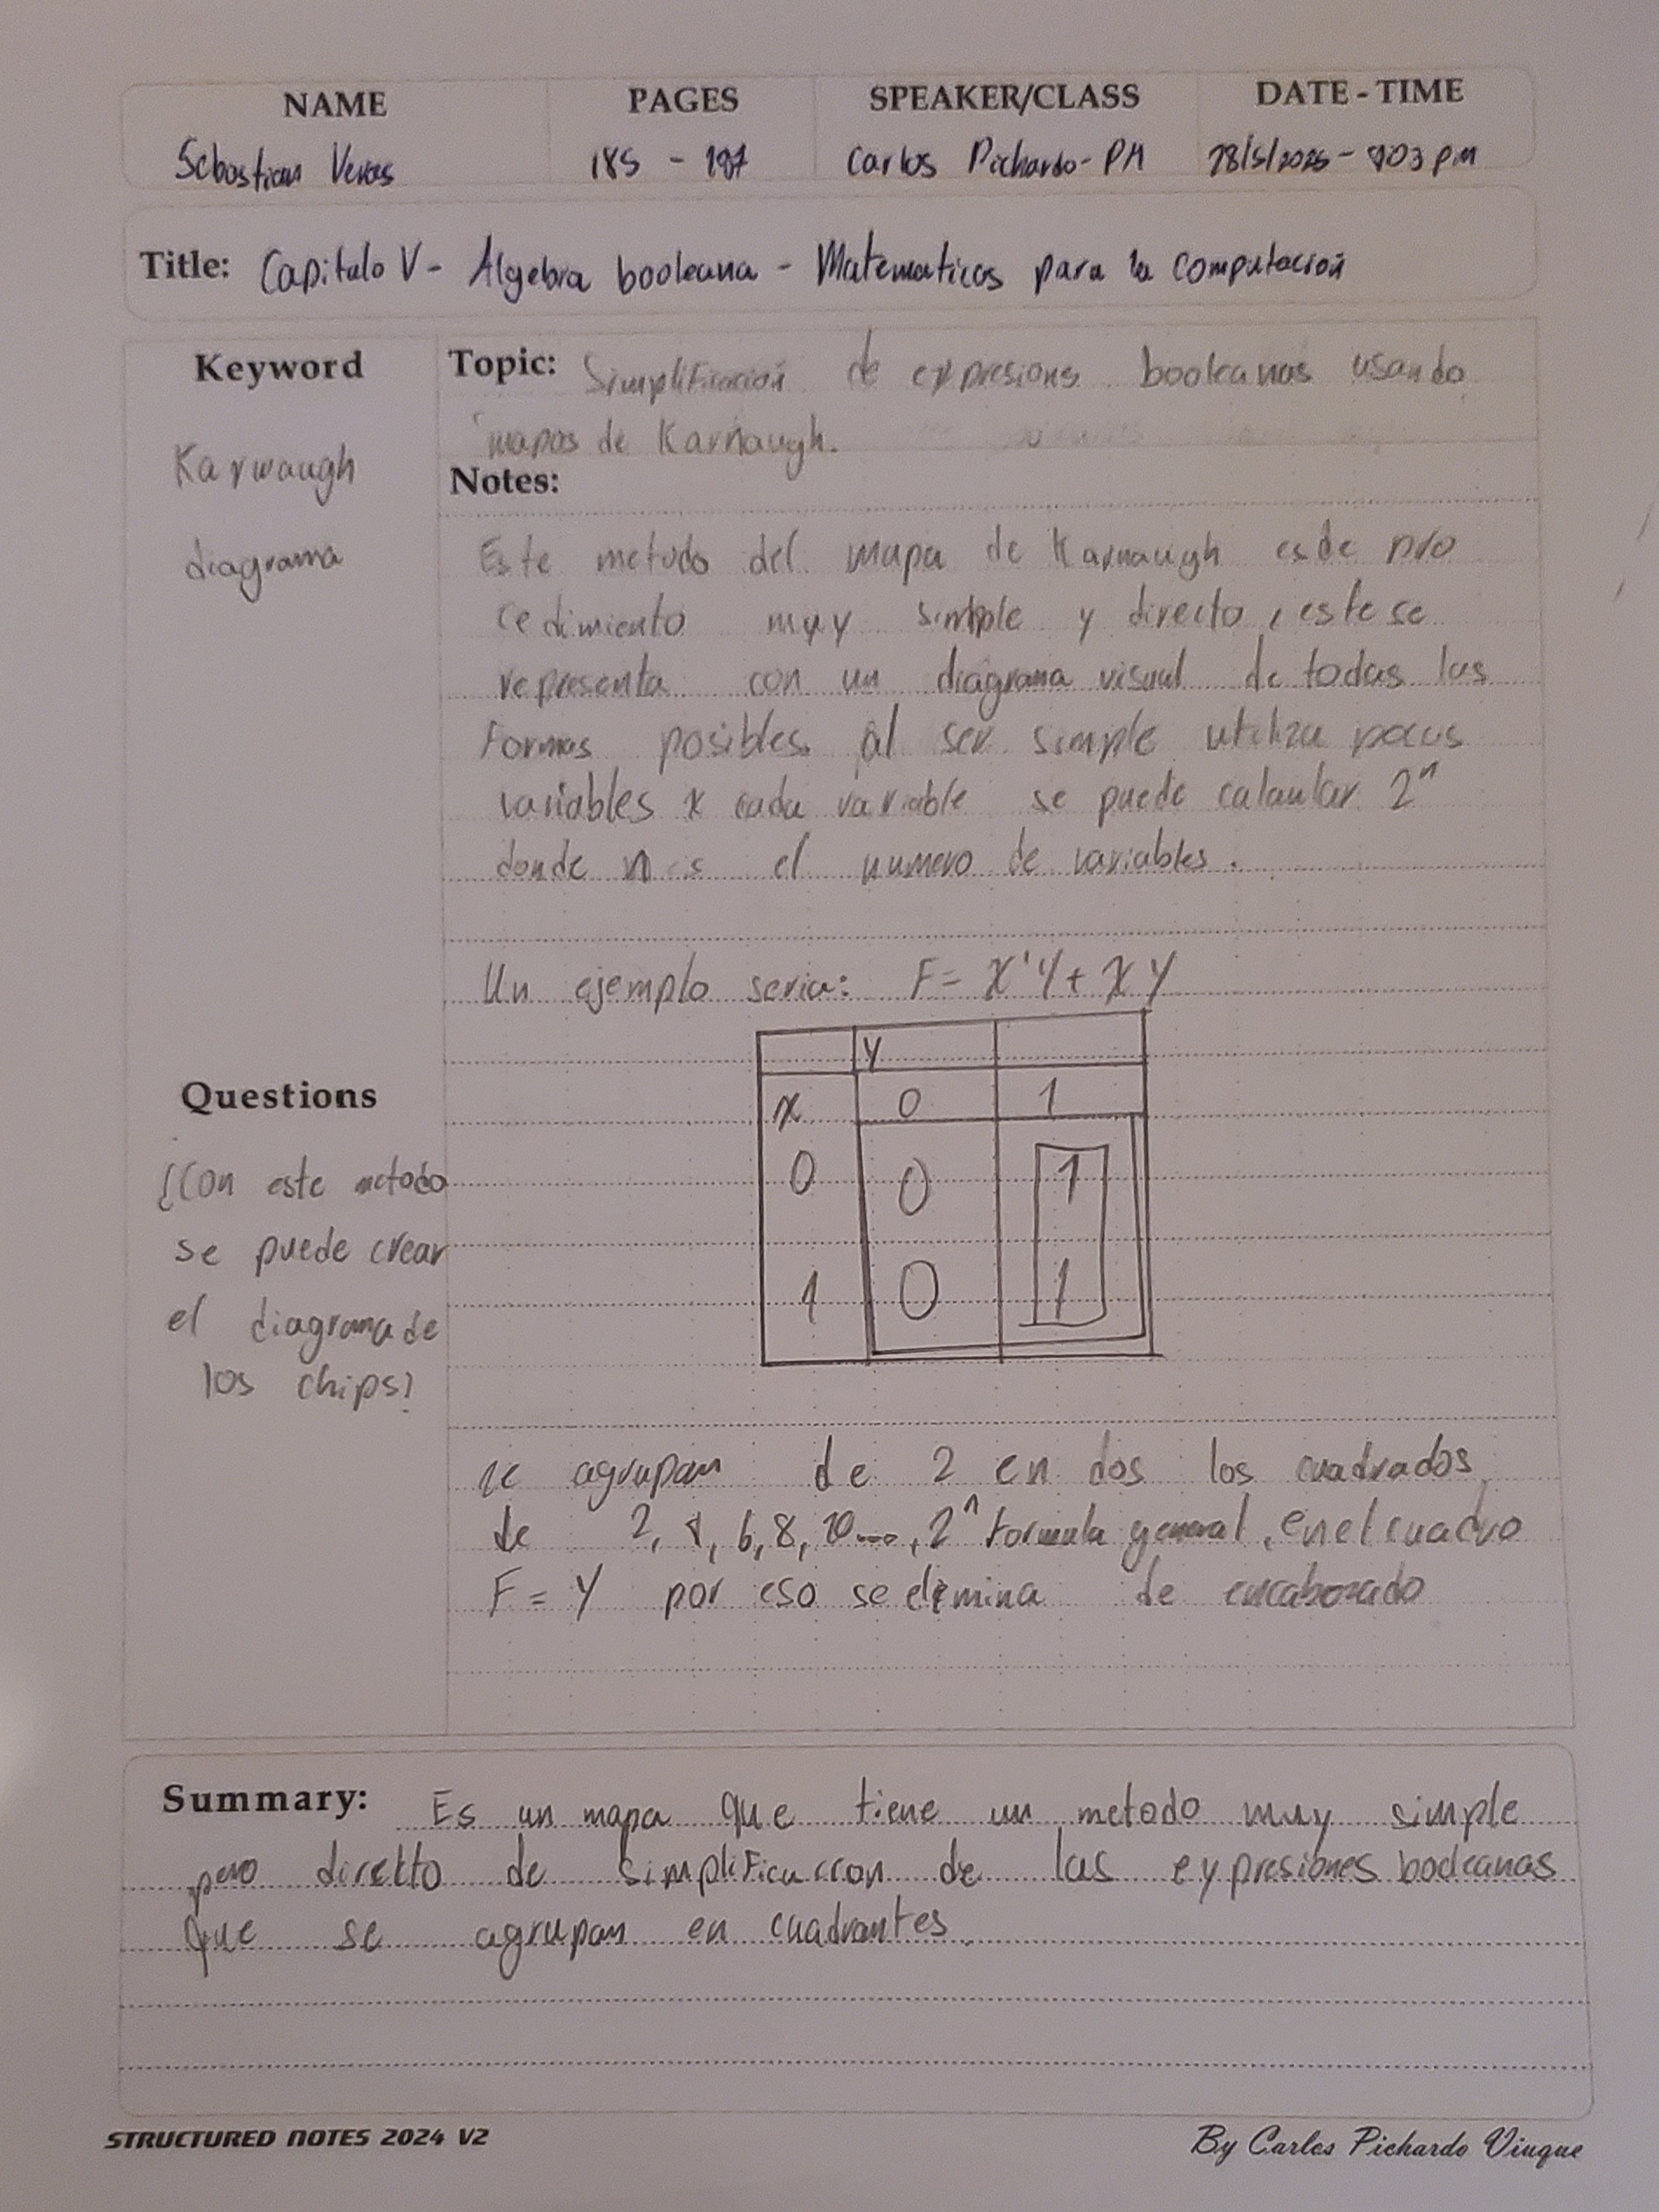 NAME PAGES SPEAKER/CLASS DATE - TIME
Sebastian Veras 185 - 187 Carlos Pichardo - PM 28/5/2025 - 903 pm
Title: Capitulo V - Algebra booleana - Matematicas para la computacion
Keyword
Karwaugh
diagrama
Topic: Simplificacion de expresions booleanas usando
mapas de Karnaugh.
Notes:
Este metodo del mapa de Karnaugh es de pro
cedimiento muy simple y directo, este se
representa con un diagrama visual de todas las
formas posibles al ser simple utiliza pocas
variables x cada variable se puede calcular 2ⁿ
donde n es el numero de variables.
Un ejemplo seria: F = X'Y + XY
Y
X 0 1
0 0 1
1 0 1
Questions
¿Con este metodo
se puede crear
el diagrama de
los chips?
se agrupan de 2 en dos los cuadrados
de 2, 4, 6, 8, 10..., 2ⁿ formula general, en el cuadro
F = Y por eso se elimina de encabezado
Summary: Es un mapa que tiene un metodo muy simple
pero directto de simplificaccion de las expresiones booleanas
que se agrupan en cuadrantes.
STRUCTURED NOTES 2024 V2
By Carlos Pichardo Viuque